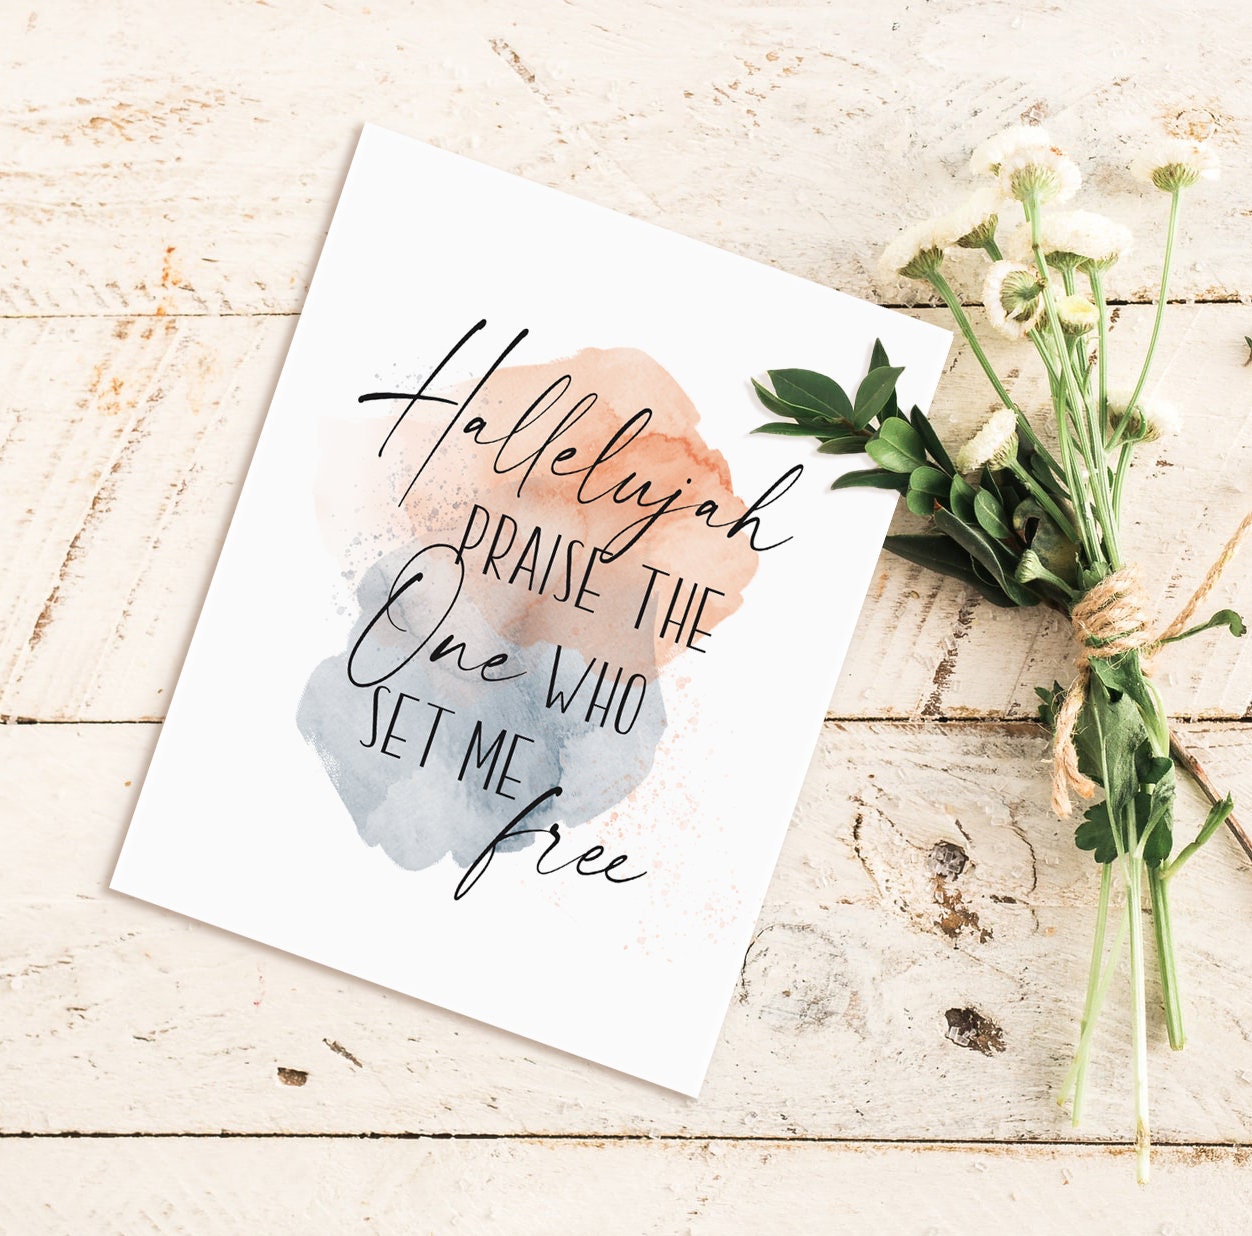 Hallelujah
PRAISE THE
One WHO
SET ME
free